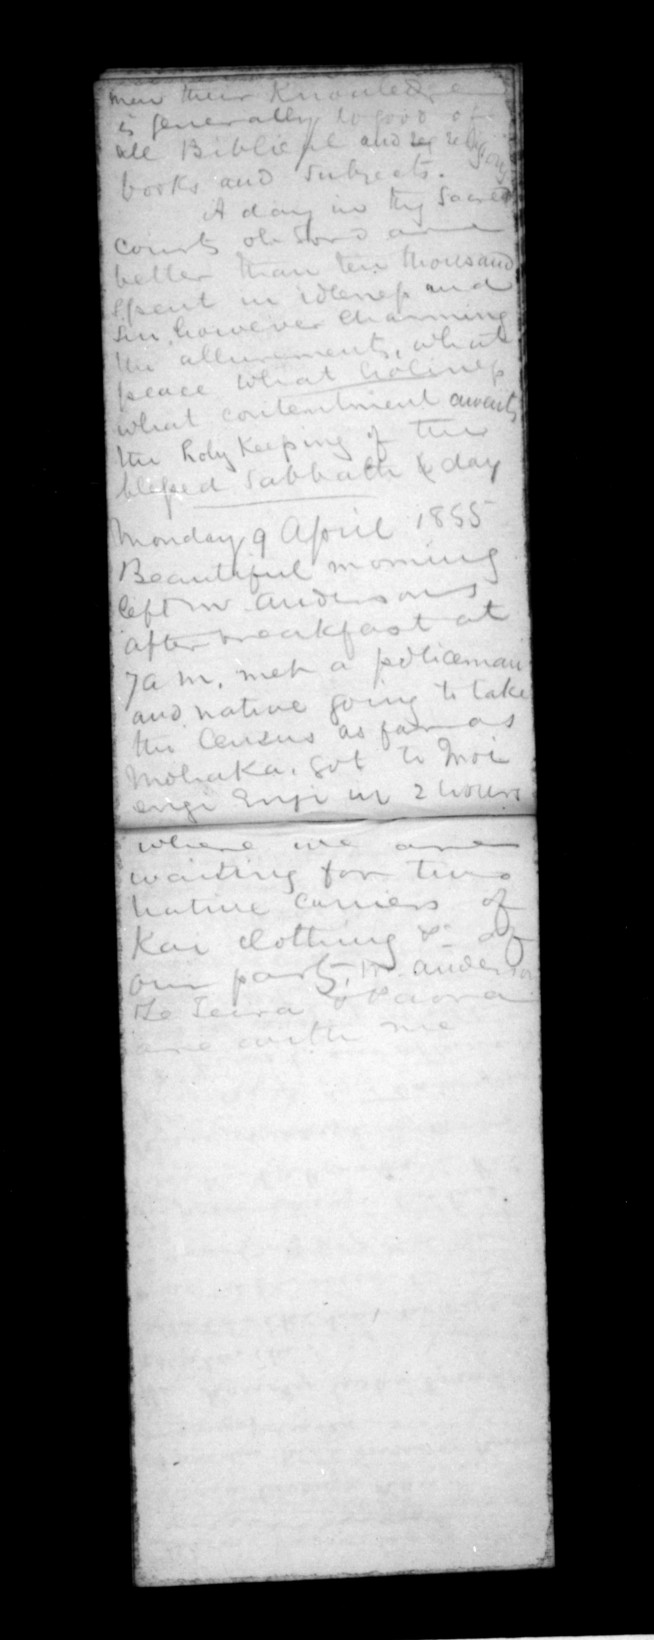 men their Knowledge
is generally so good of
all Biblical and religious
books and subjects.
A day in thy Sacred
courts oh Lord are
better than ten thousand
Spent in idleness and
sin, however charming
the allurements, what
peace what holiness
what contentment awaits
the holy Keeping of the
blessed Sabbath day
Monday 9 April 1855
Beautiful morning
left Mr Andersons
after breakfast at
7 am, met a policeman
and native going to take
the Census as far as
Mohaka. got to Moe
engi Engi in 2 hours
where we are
waiting for two
native carriers of
Kai clothing &c of
our party, Mr Anderson
are with me